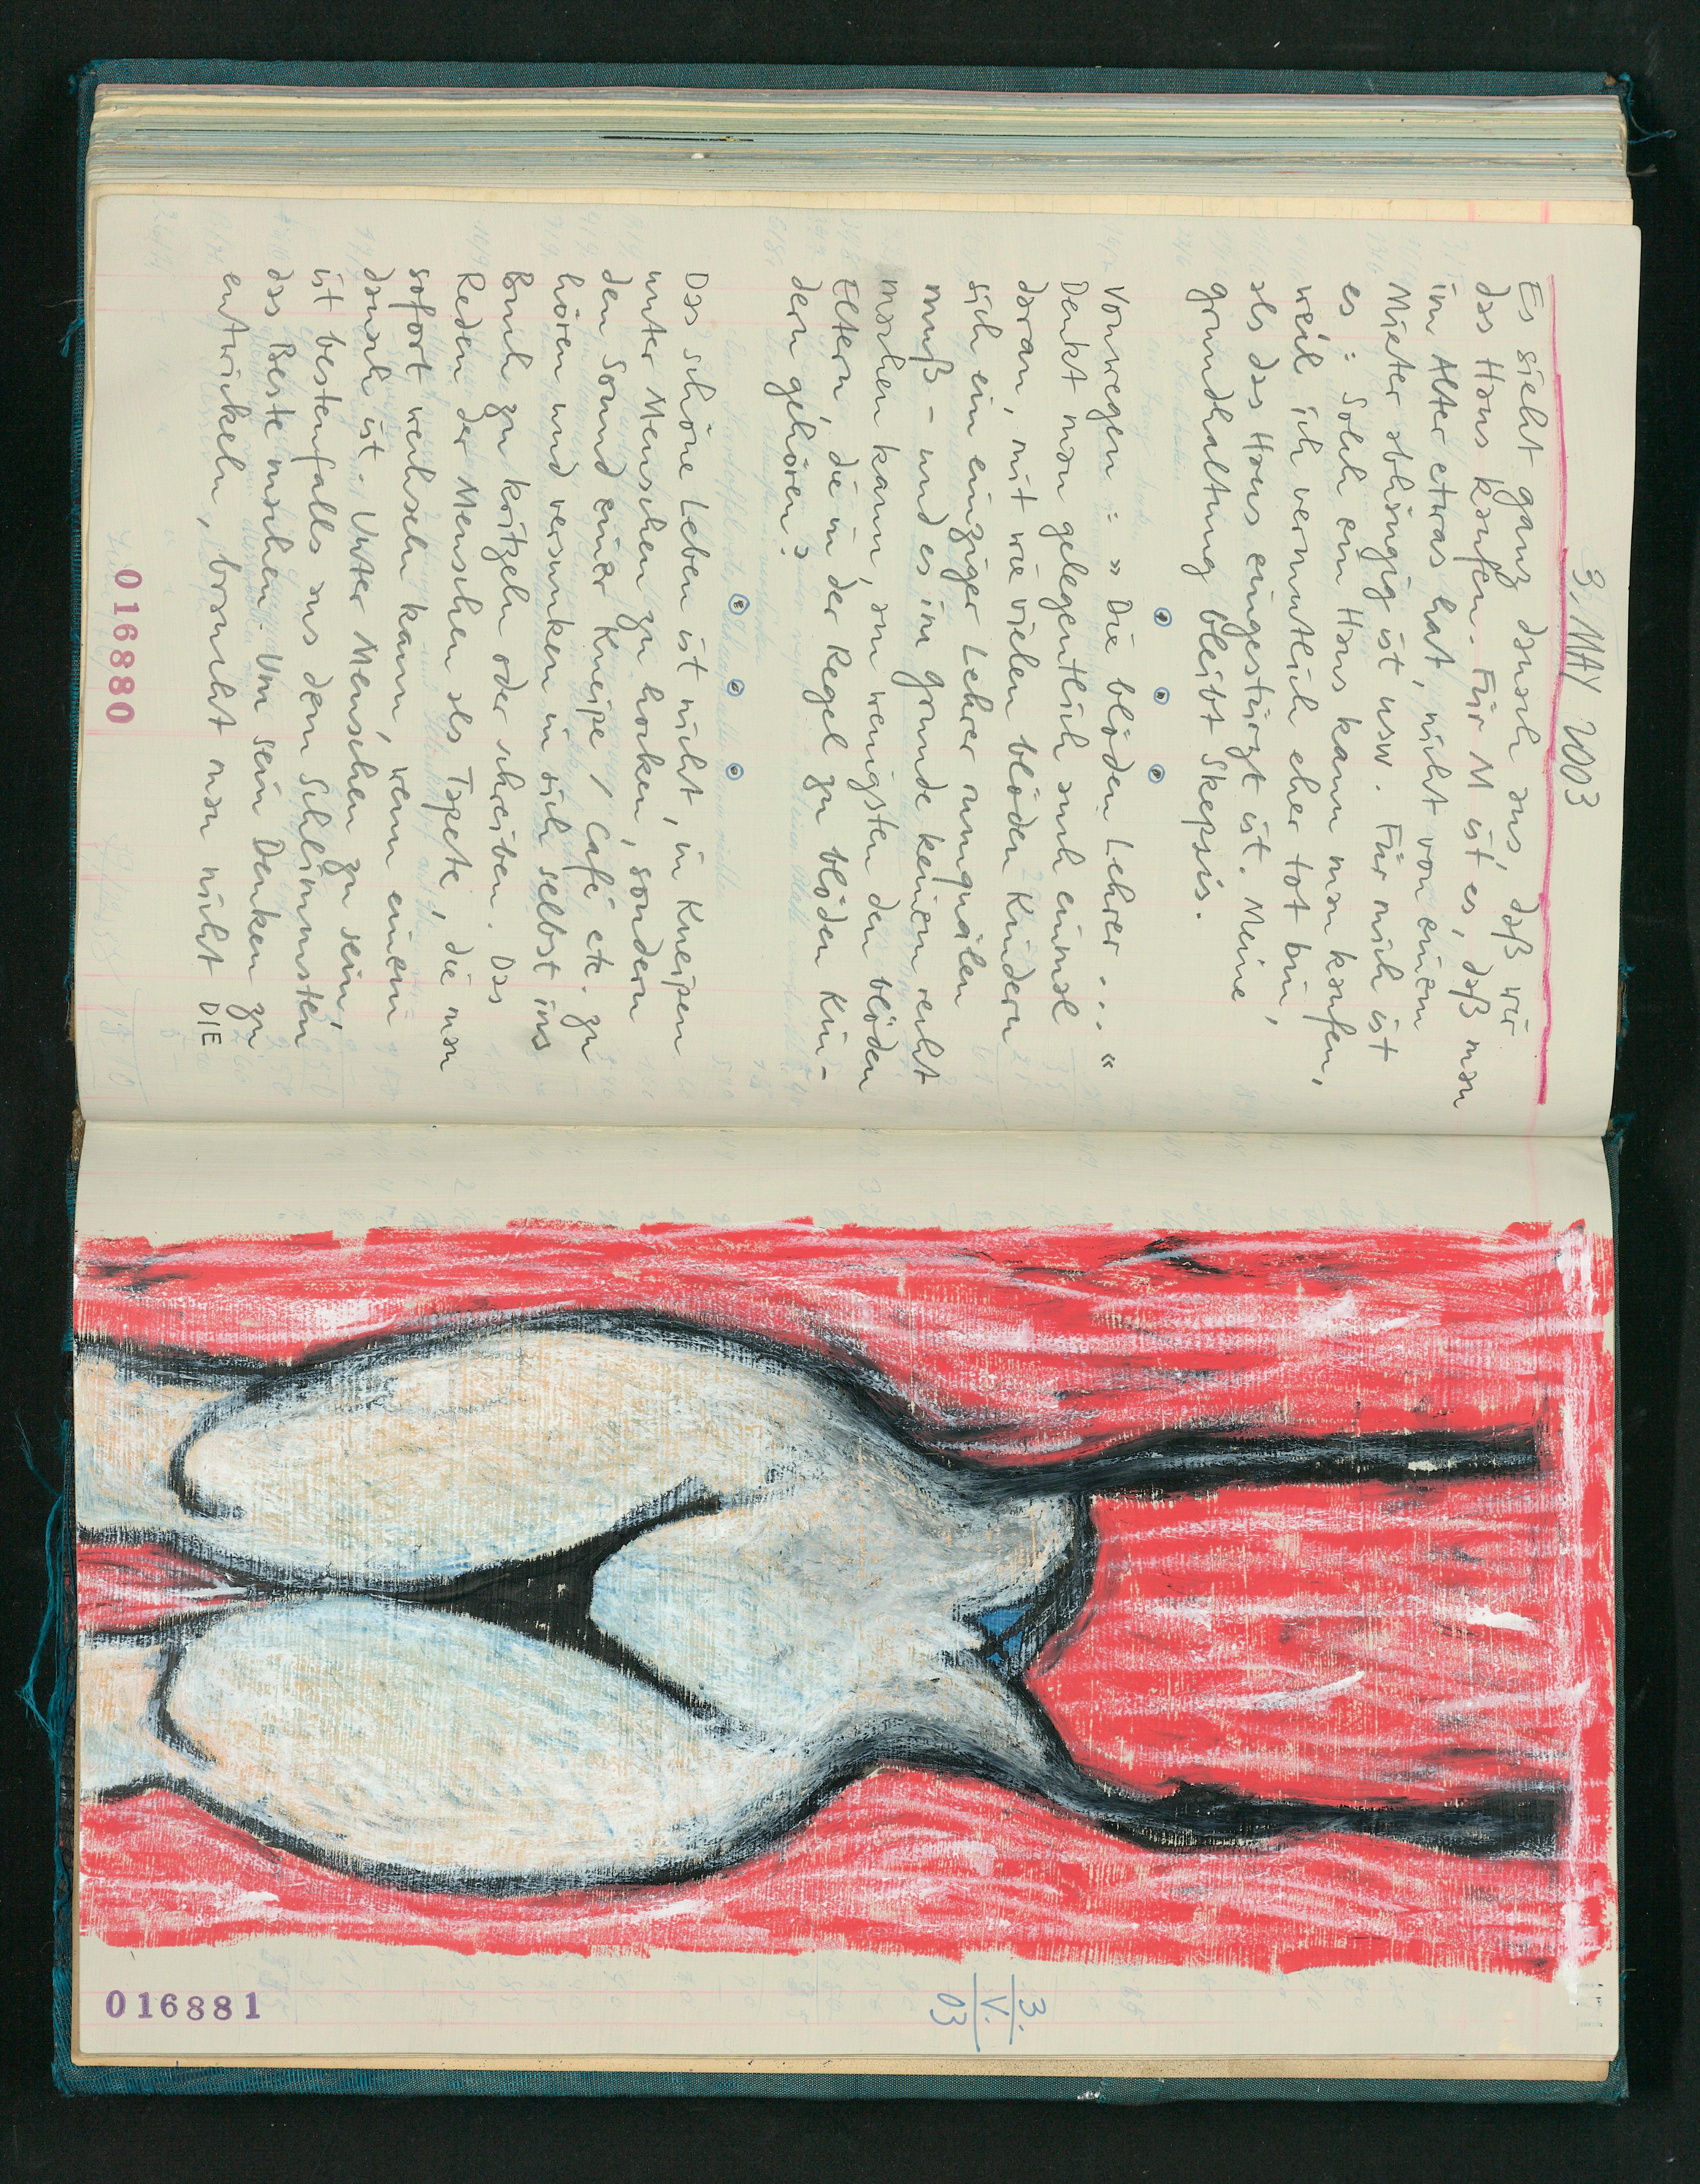 3. MAY 2003
Es sieht ganz danach aus, daß wir
das Haus kaufen. Für M ist es, daß man
im Alter etwas hat, nicht von einem
Mieter abhängig ist usw. Für mich ist
es: Solch ein Haus kann man kaufen,
weil ich vermutlich eher tot bin,
als das Haus eingestürzt ist. Meine
Grundhaltung bleibt Skepsis.
Vonwegen: » Die blöden Lehrer ... «
Denkt man gelegentlich auch einmal
daran, mit wie vielen blöden Kindern
sich ein einziger Lehrer rumquälen
muß - und es im Grunde keinem recht
machen kann, am wenigsten den blöden
Eltern, die in der Regel zu blöden Kin-
dern gehören?
Das schöne Leben ist nicht, in Kneipen
unter Menschen zu hocken, sondern
den Sound einer Kneipe / Café etc. zu
hören und versunken in sich selbst ins
Buch zu kritzeln oder schreiben. Das
Reden der Menschen als Tapete, die man
sofort wechseln kann, wenn einem
danach ist. Unter Menschen zu sein,
ist bestenfalls aus dem Schlimmsten
das Beste machen. Um sein Denken zu
entwickeln, braucht man nicht DIE
016880
3.
V.
03
016881